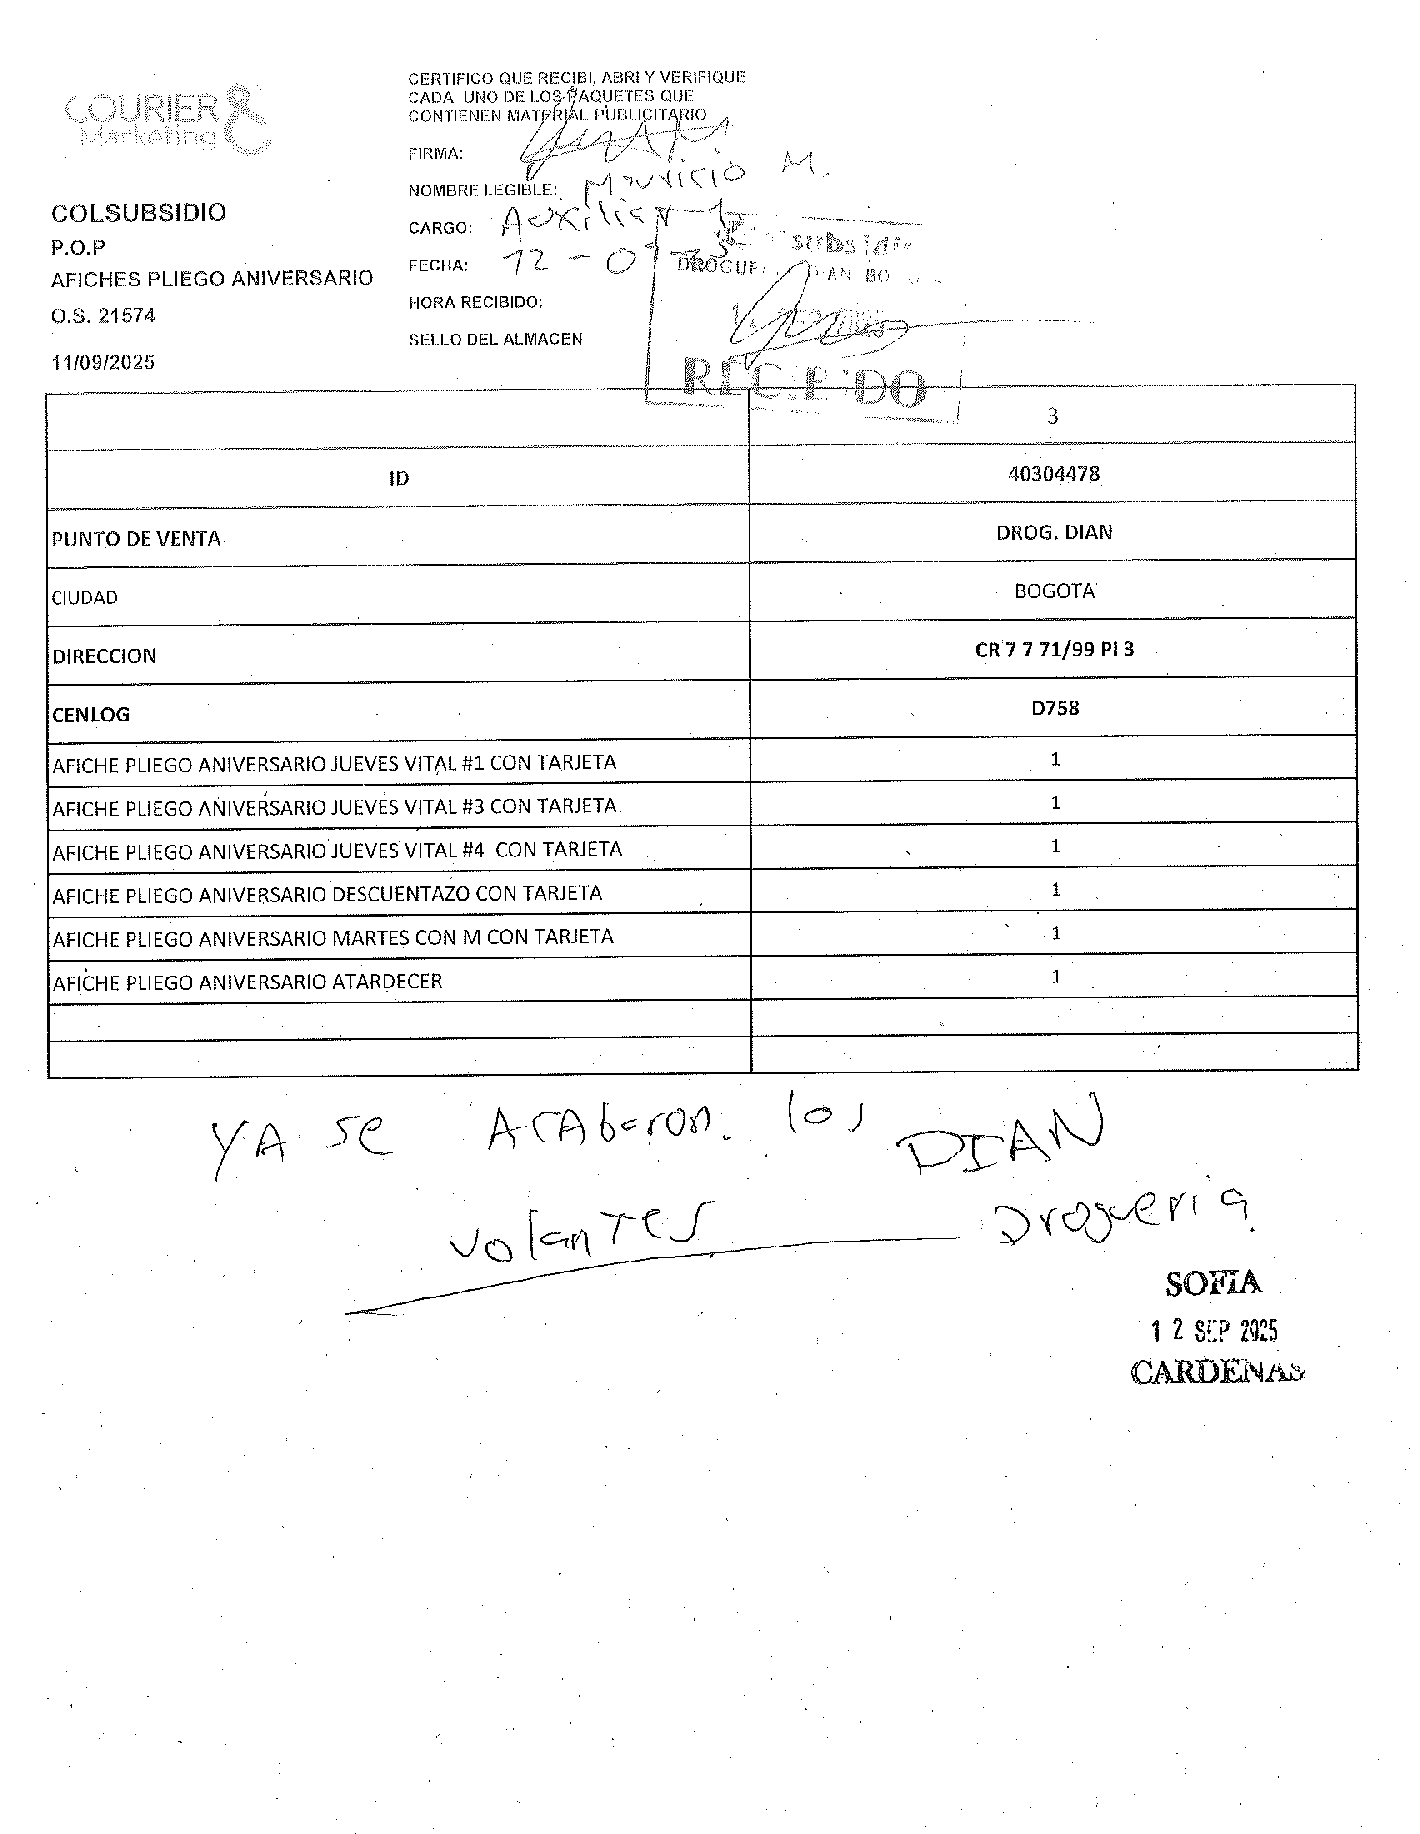 COURIER
Marketing
COLSUBSIDIO
P.O.P
AFICHES PLIEGO ANIVERSARIO
O.S. 21574
11/09/2025
CERTIFICO QUE RECIBI, ABRI Y VERIFIQUE
CADA UNO DE LOS PAQUETES QUE
CONTIENEN MATERIAL PUBLICITARIO
FIRMA:
NOMBRE LEGIBLE: Mauricio M.
CARGO: Auxiliar
FECHA: 12 - 09
HORA RECIBIDO:
SELLO DEL ALMACEN
DIAN BO
RECIBIDO
3
ID 40304478
PUNTO DE VENTA DROG. DIAN
CIUDAD BOGOTA
DIRECCION CR 7 7 71/99 PI 3
CENLOG D758
AFICHE PLIEGO ANIVERSARIO JUEVES VITAL #1 CON TARJETA 1
AFICHE PLIEGO ANIVERSARIO JUEVES VITAL #3 CON TARJETA 1
AFICHE PLIEGO ANIVERSARIO JUEVES VITAL #4 CON TARJETA 1
AFICHE PLIEGO ANIVERSARIO DESCUENTAZO CON TARJETA 1
AFICHE PLIEGO ANIVERSARIO MARTES CON M CON TARJETA 1
AFICHE PLIEGO ANIVERSARIO ATARDECER 1
YA se AcAbaron los DIAN
volantes Drogueria
SOFIA
12 SEP 2025
CARDENAS